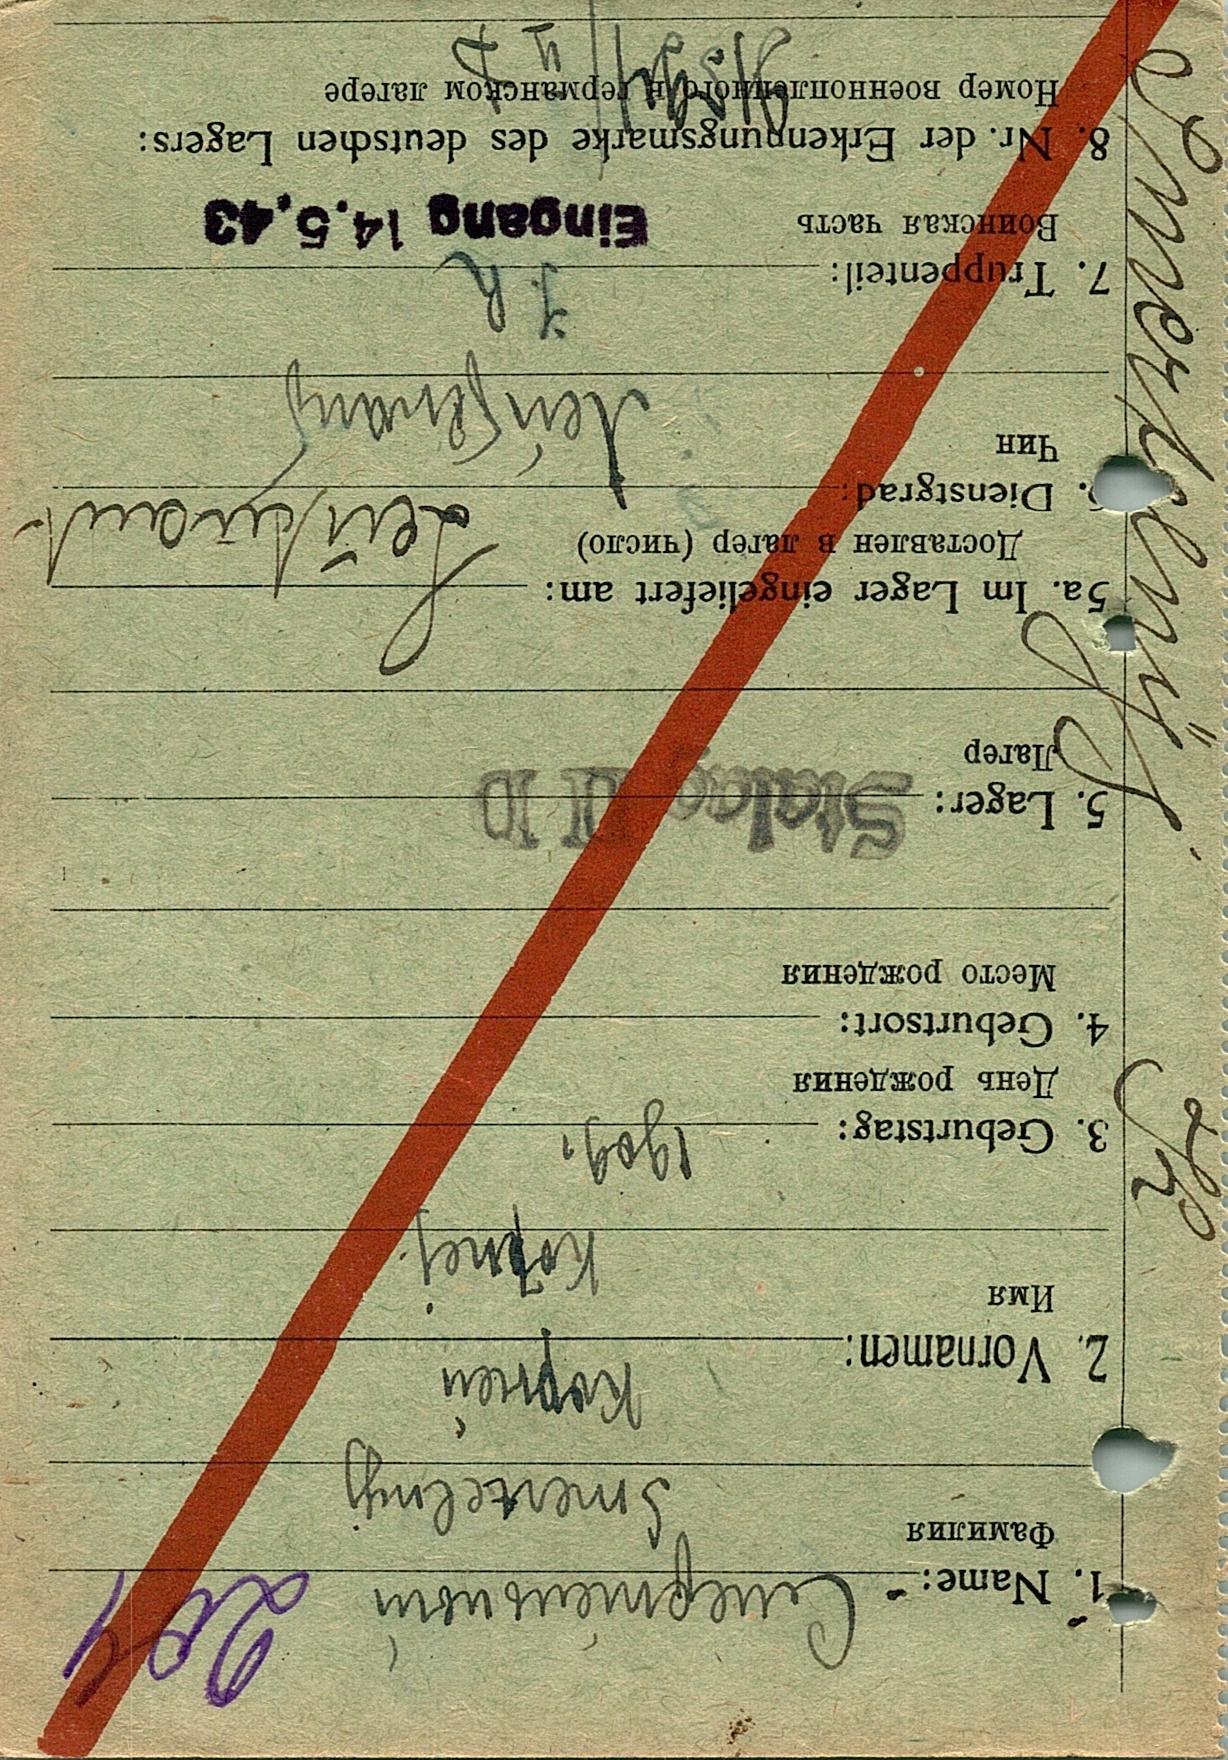 1. Name: Смертельный
Фамилия
Smertelnyj
2. Vornamen: Корней
Имя
Kornej
3. Geburtstag: 1909.
День рождения
4. Geburtsort:
Место рождения
5. Lager: Stalag II D
Лагер
5a. Im Lager eingeliefert am:
Доставлен в лагер (число)
Leutnant
6. Dienstgrad:
Чин
Лейтенант
7. Truppenteil: J. R
Воинская часть
Eingang 14.5.43
8. Nr. der Erkennungsmarke des deutschen Lagers:
Номер военнопленного в германском лагере
II D
Smertelnyj